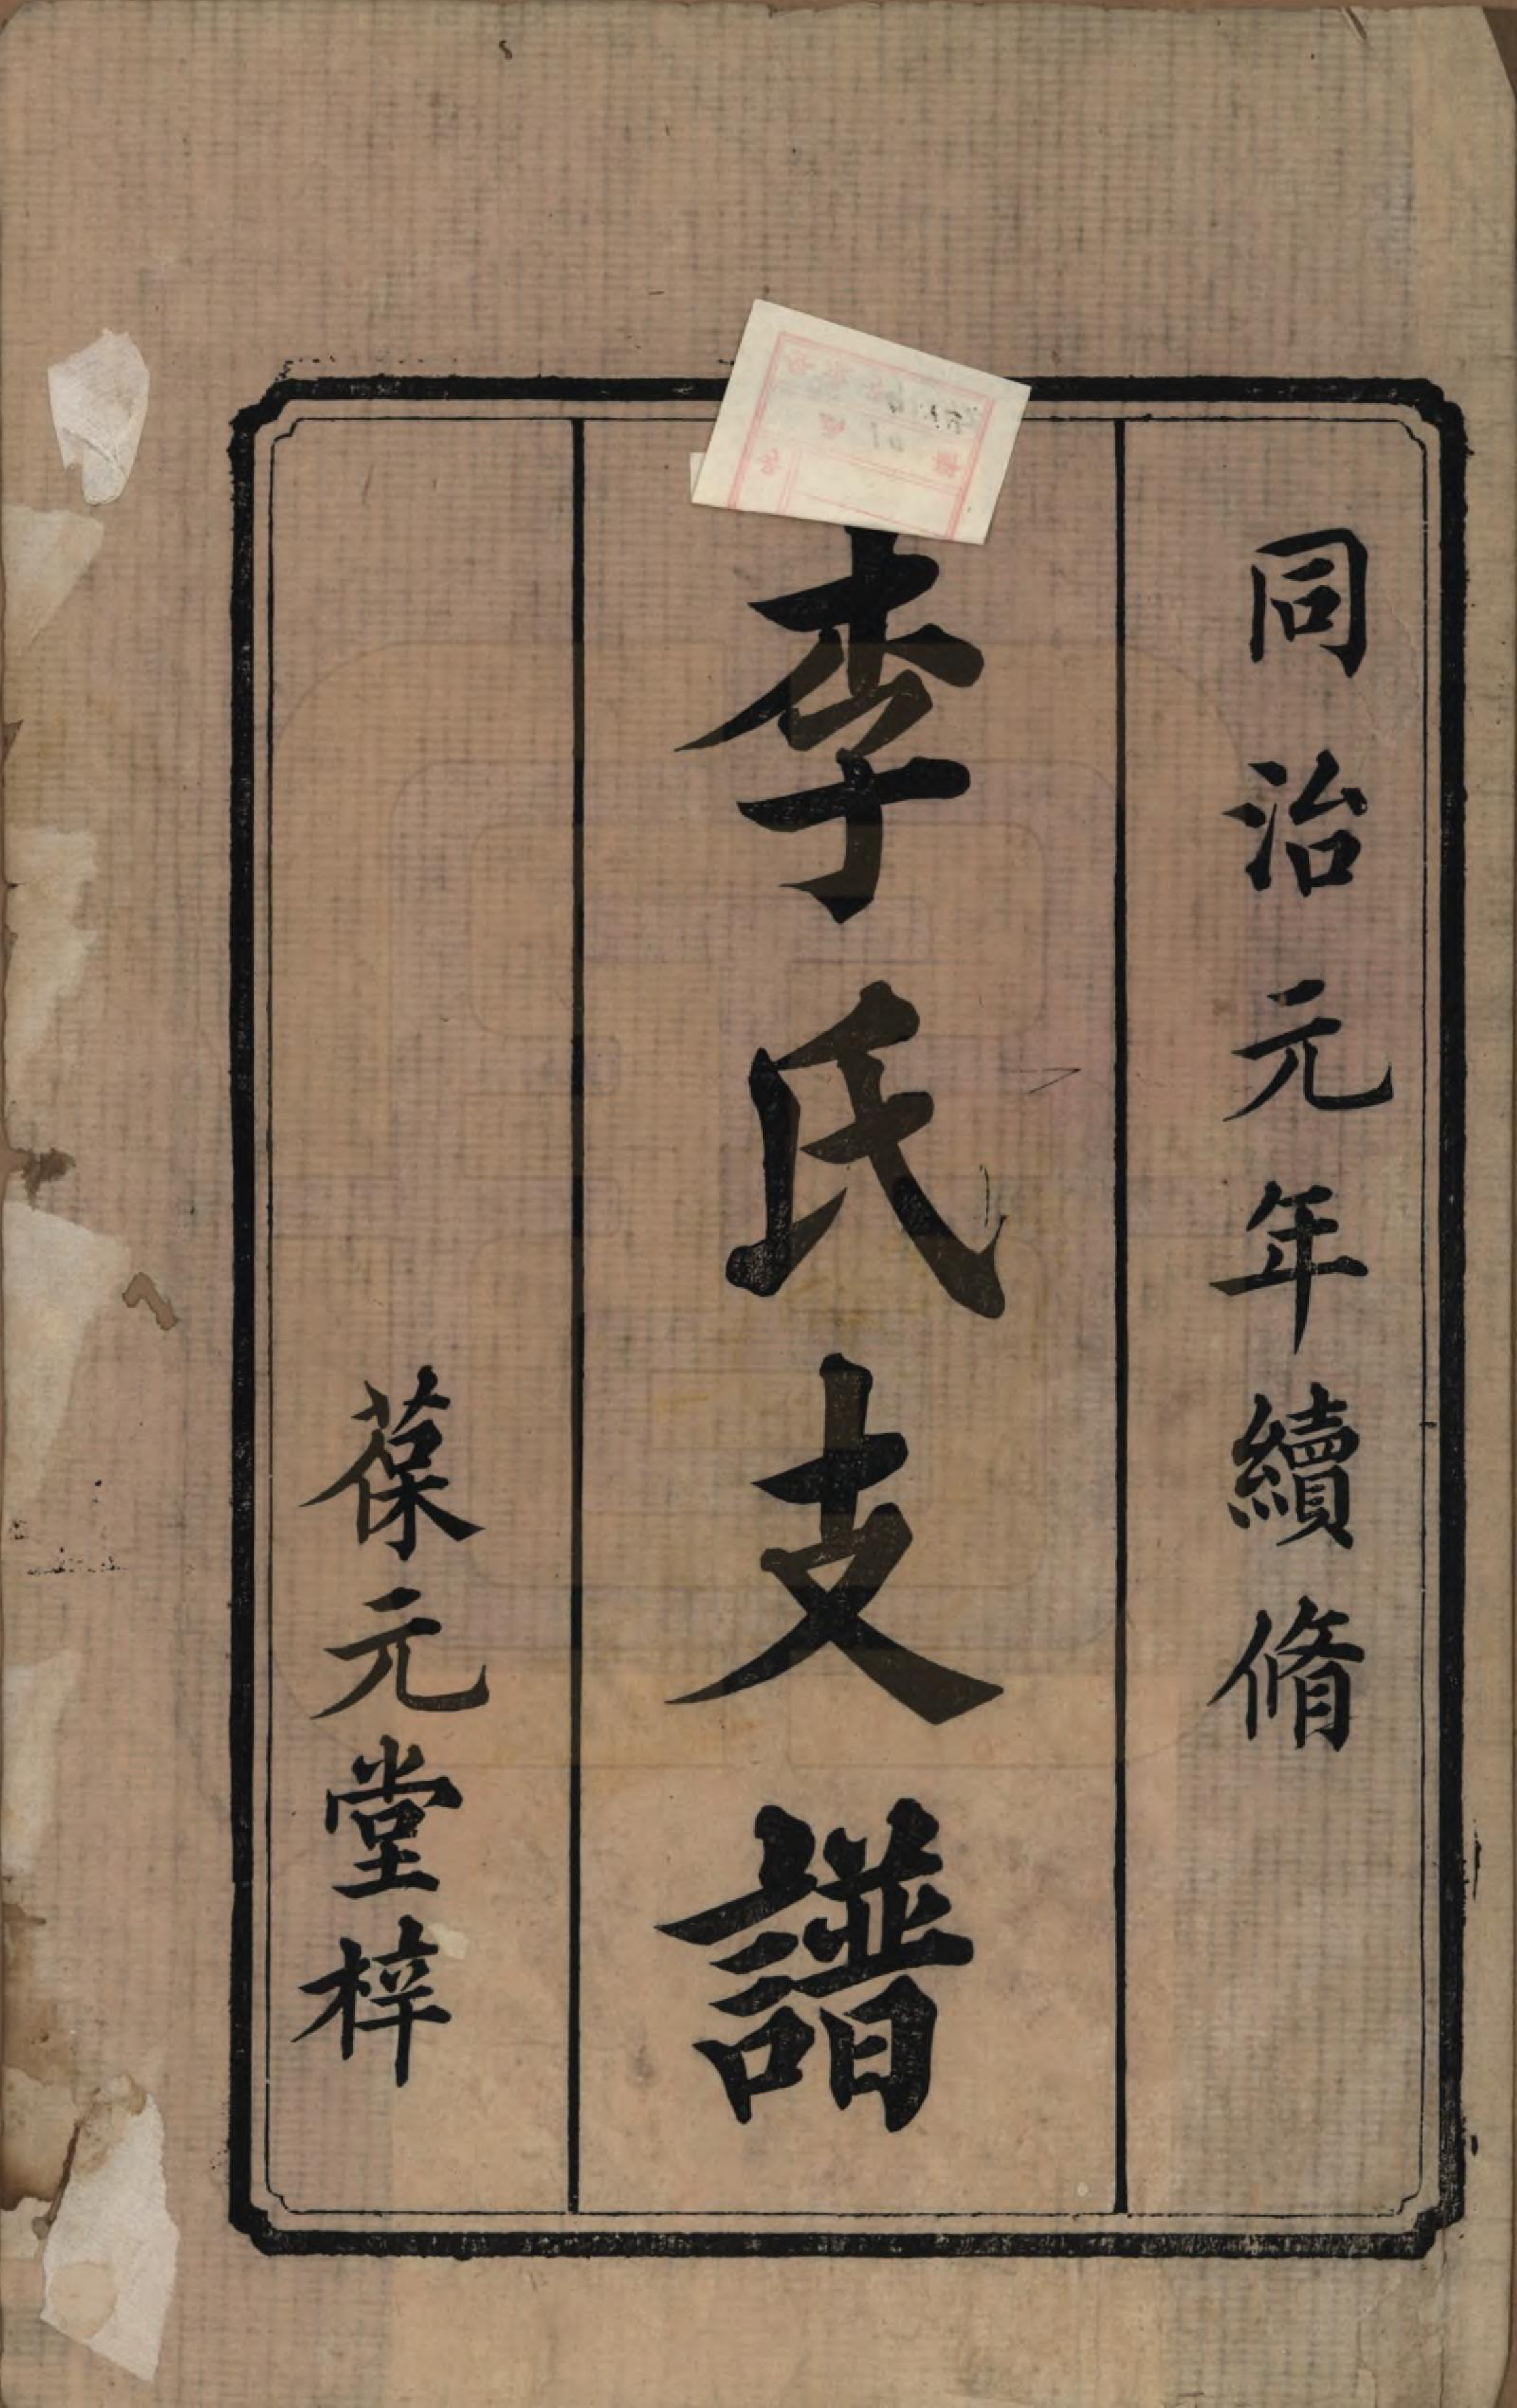 同治元年續脩
李氏支譜
葆元堂梓